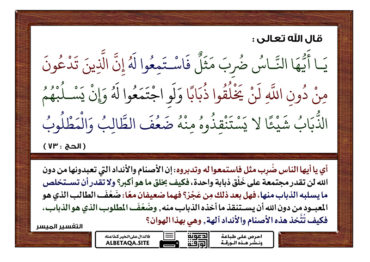 قال الله تعالى :
يَا أَيُّهَا النَّاسُ ضُرِبَ مَثَلٌ فَاسْتَمِعُوا لَهُ إِنَّ الَّذِينَ تَدْعُونَ
مِنْ دُونِ اللَّهِ لَنْ يَخْلُقُوا ذُبَابًا وَلَوِ اجْتَمَعُوا لَهُ وَإِنْ يَسْلُبْهُمُ
الذُّبَابُ شَيْئًا لَا يَسْتَنْقِذُوهُ مِنْهُ ضَعُفَ الطَّالِبُ وَالْمَطْلُوبُ
( الحج : ٧٣ )
أي يا أيها الناس ضُرِب مثل فاستمعوا له وتدبروه: إن الأصنام والأنداد التي تعبدونها من دون
الله لن تقدر مجتمعة على خَلْق ذبابة واحدة، فكيف بخلق ما هو أكبر؟ ولا تقدر أن تستخلص
ما يسلبه الذباب منها، فهل بعد ذلك مِن عَجْز؟ فهما ضعيفان معًا: ضَعُفَ الطالب الذي هو
المعبود من دون الله أن يستنقذ ما أخذه الذباب منه, وضَعُف المطلوب الذي هو الذباب،
فكيف تُتَّخذ هذه الأصنام والأنداد آلهة, وهي بهذا الهوان؟
التفسير الميسر
احرص على طباعة
ونشر هذه الورقة
فالدال على الخير كفاعله
ALBETAQA.SITE